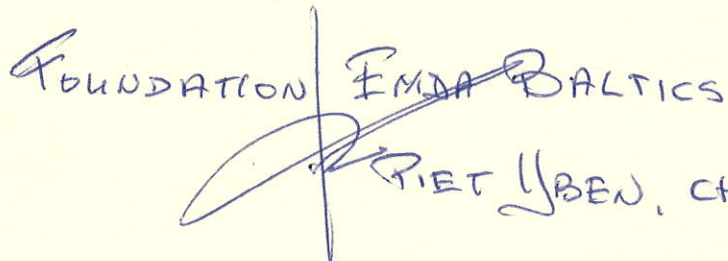 FOUNDATION EMDA BALTICS
PIET YBEN, CH